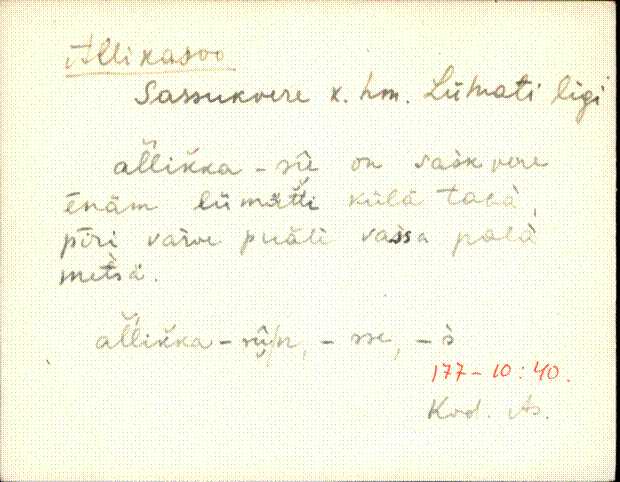 Allikasoo
Sassukvere k. hm. Lümati ligi
al̆likka - sùe on sask vere
ēnäm lümătti külä tabà,
pīri varve puäli vassa palà
metsä.
al̆likka - sùi/n, - sse, - s̀
177-10:40.
Kod. As.